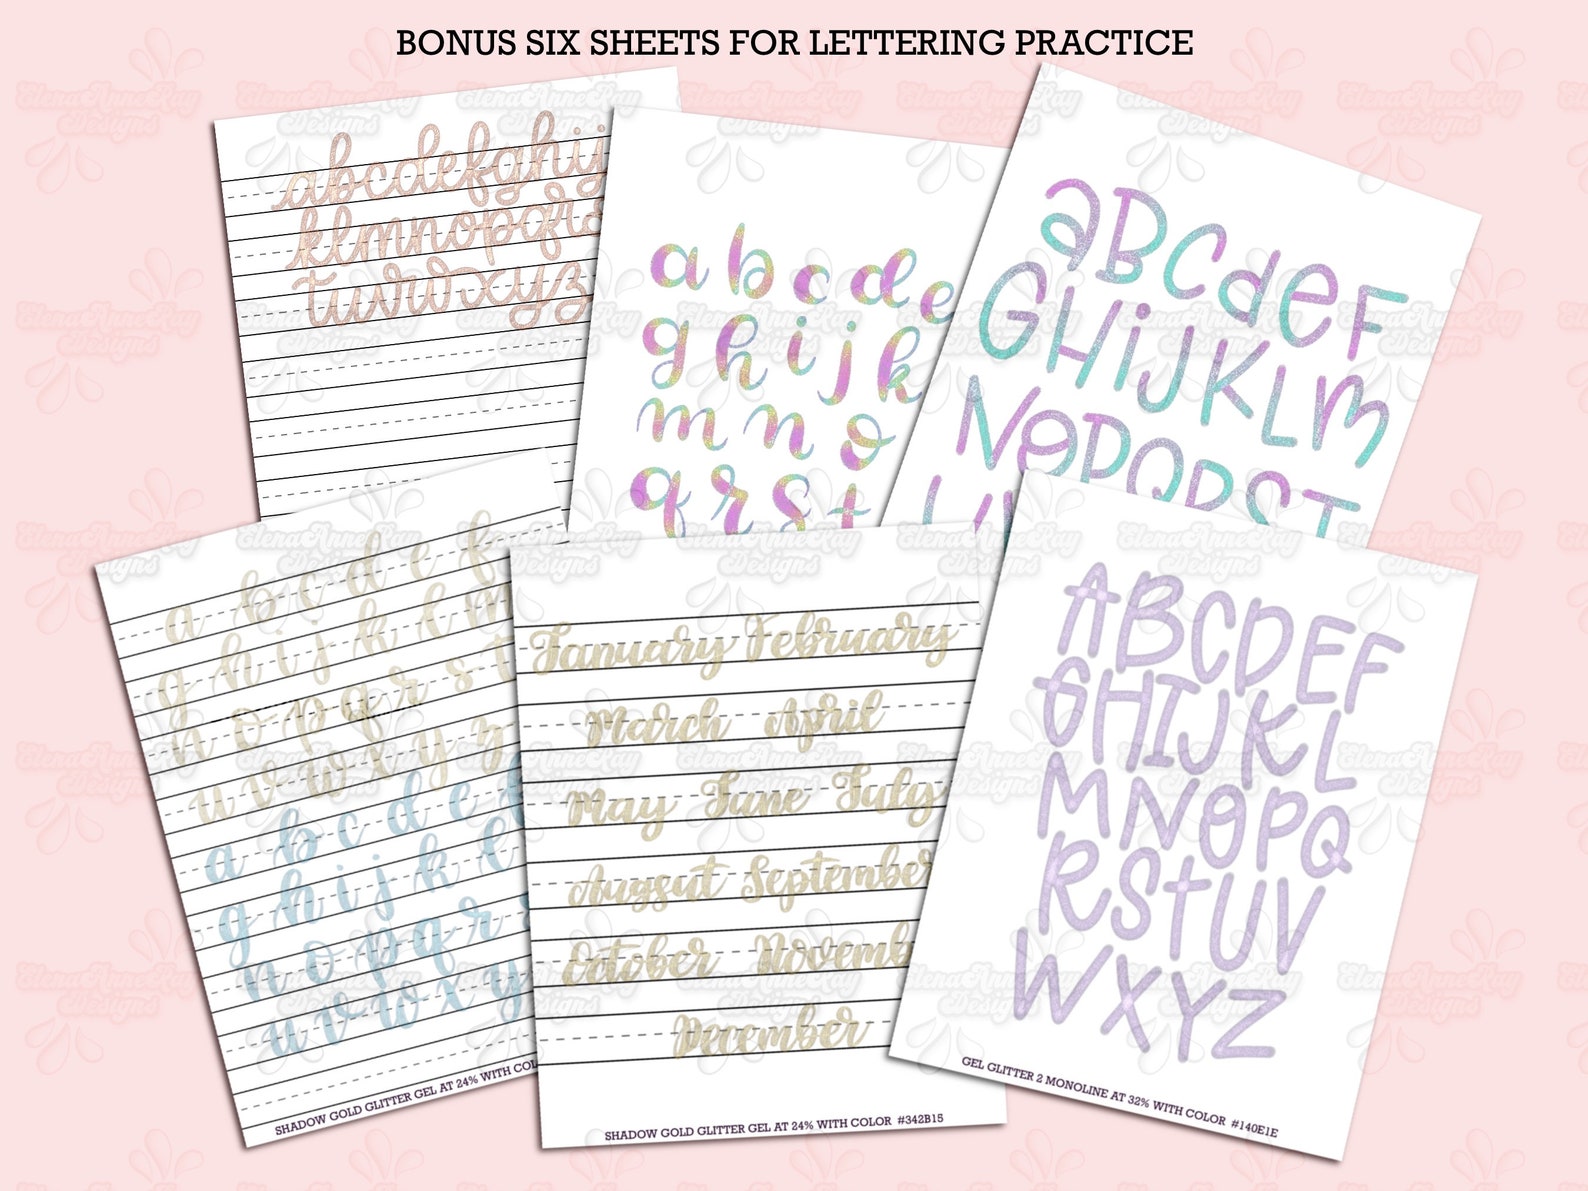 BONUS SIX SHEETS FOR LETTERING PRACTICE
abcdefghij
klmnopqrs
tuvwxyz
a b c d e
g h i j k
m n o
q r s t
a B C d e F
G H i J K L m
N O P Q R S T
U V
a b c d e f
g h i j k l m
n o p q r s t
u v w x y z
a b c d e f
g h i j k l
n o p q r
u v w x y
SHADOW GOLD GLITTER GEL AT 24% WITH COL
January February
March April
May June July
Augsut September
October Novemb
December
SHADOW GOLD GLITTER GEL AT 24% WITH COLOR #342B15
ABCDEF
GHIJKL
MNOPQ
RSTUV
WXYZ
GEL GLITTER 2 MONOLINE AT 32% WITH COLOR #140E1E
ElenaAnneKay
Designs